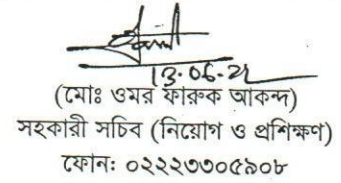 13.06.22
(মোঃ ওমর ফারুক আকন্দ)
সহকারী সচিব (নিয়োগ ও প্রশিক্ষণ)
ফোনঃ ০২২২৩৩০৫৯০৮